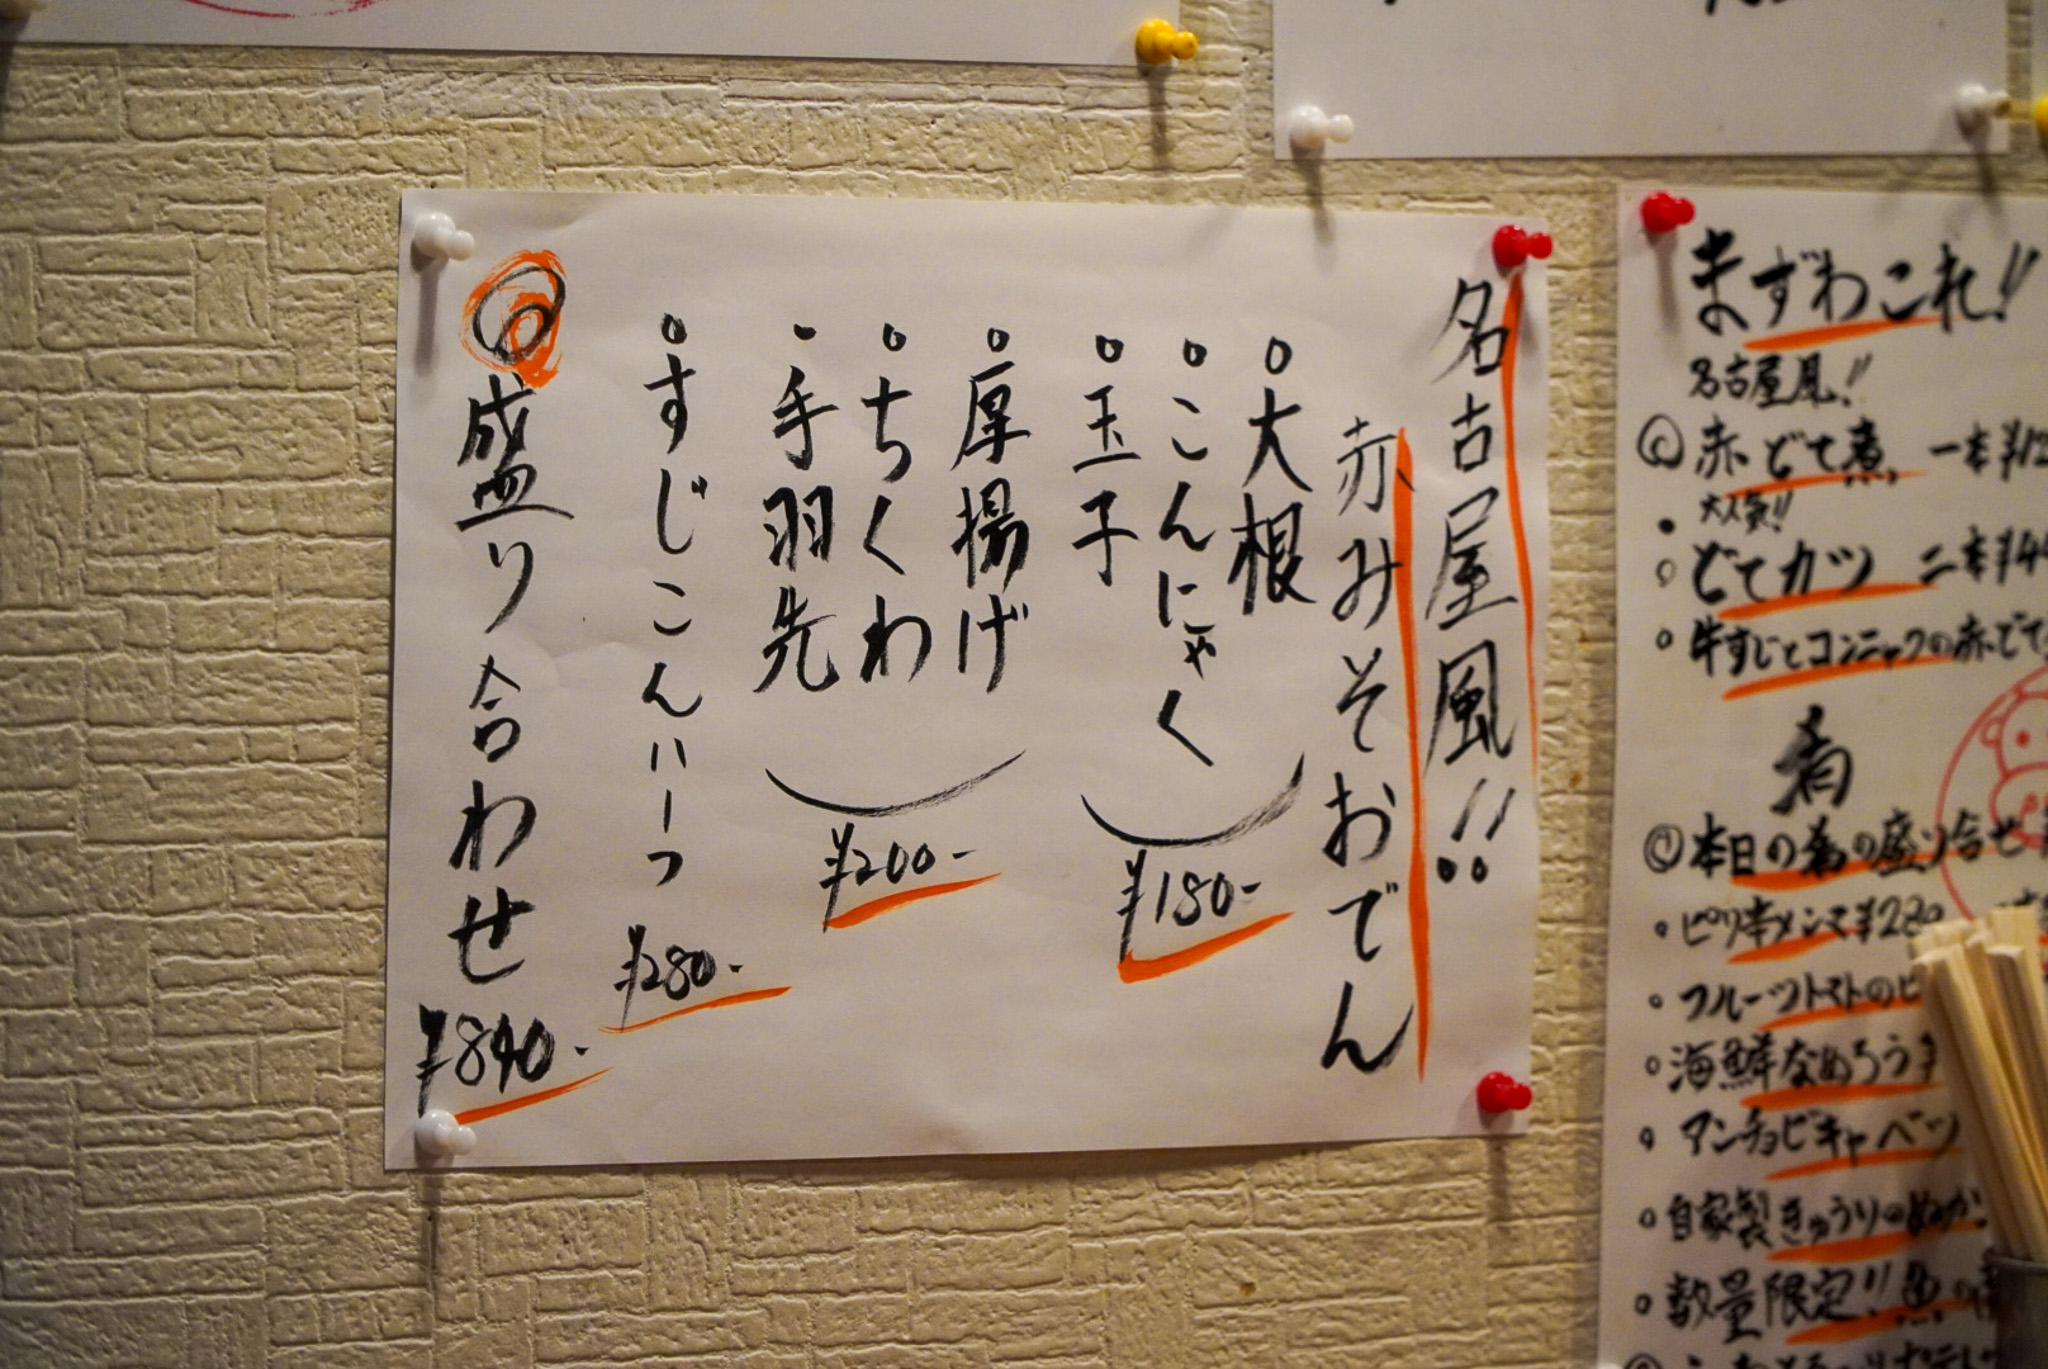 名古屋風!!
赤みそおでん
○大根
○こんにゃく
○玉子
¥180-
○厚揚げ
○ちくわ
・手羽先
¥200-
○すじこんハーフ
¥280-
◎盛り合わせ
¥840-
まずわこれ!!
名古屋風!!
◎赤どて煮 一本¥12
大人気!!
○どてカツ 二本¥44
○牛すじとコンニャクの赤どて
肴
◎本日の肴の盛り合せ
・ピリ辛メンマ¥220
○フルーツトマトのピ
○海鮮なめろう
○アンチョビキャベツ
○自家製きゅうりのぬか
○数量限定!!